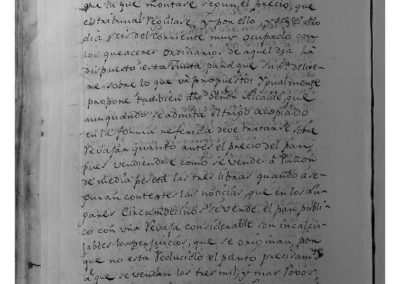 que ya que montase segun el precio, que
el tribunal regulase, y por ello, y ser el
dia seis del corriente muy ocupado con
los quaceres ordinarios de aquel dia ha
dispuesto esta Junta, para que su Sª delibe-
re sobre lo que va propuesto; Ygualmente
propone tambien dho Señor Alcalde, que
aun quando se admita el trigo acopiado
en la forma referida deve tratarse sobre
revajar quanto antes el precio del pan,
pues vendiendose como se vende à razon
de media peseta las tres libras quando ase-
guran contextes las noticias, que en los Lu-
gares Circumbecinos se vende el pan publi-
co con una revaja considerable son incalcu-
lables los perjuicios, que se originan, por
que no esta reducido el punto precisamte
à que se vendan los tres mil y mas